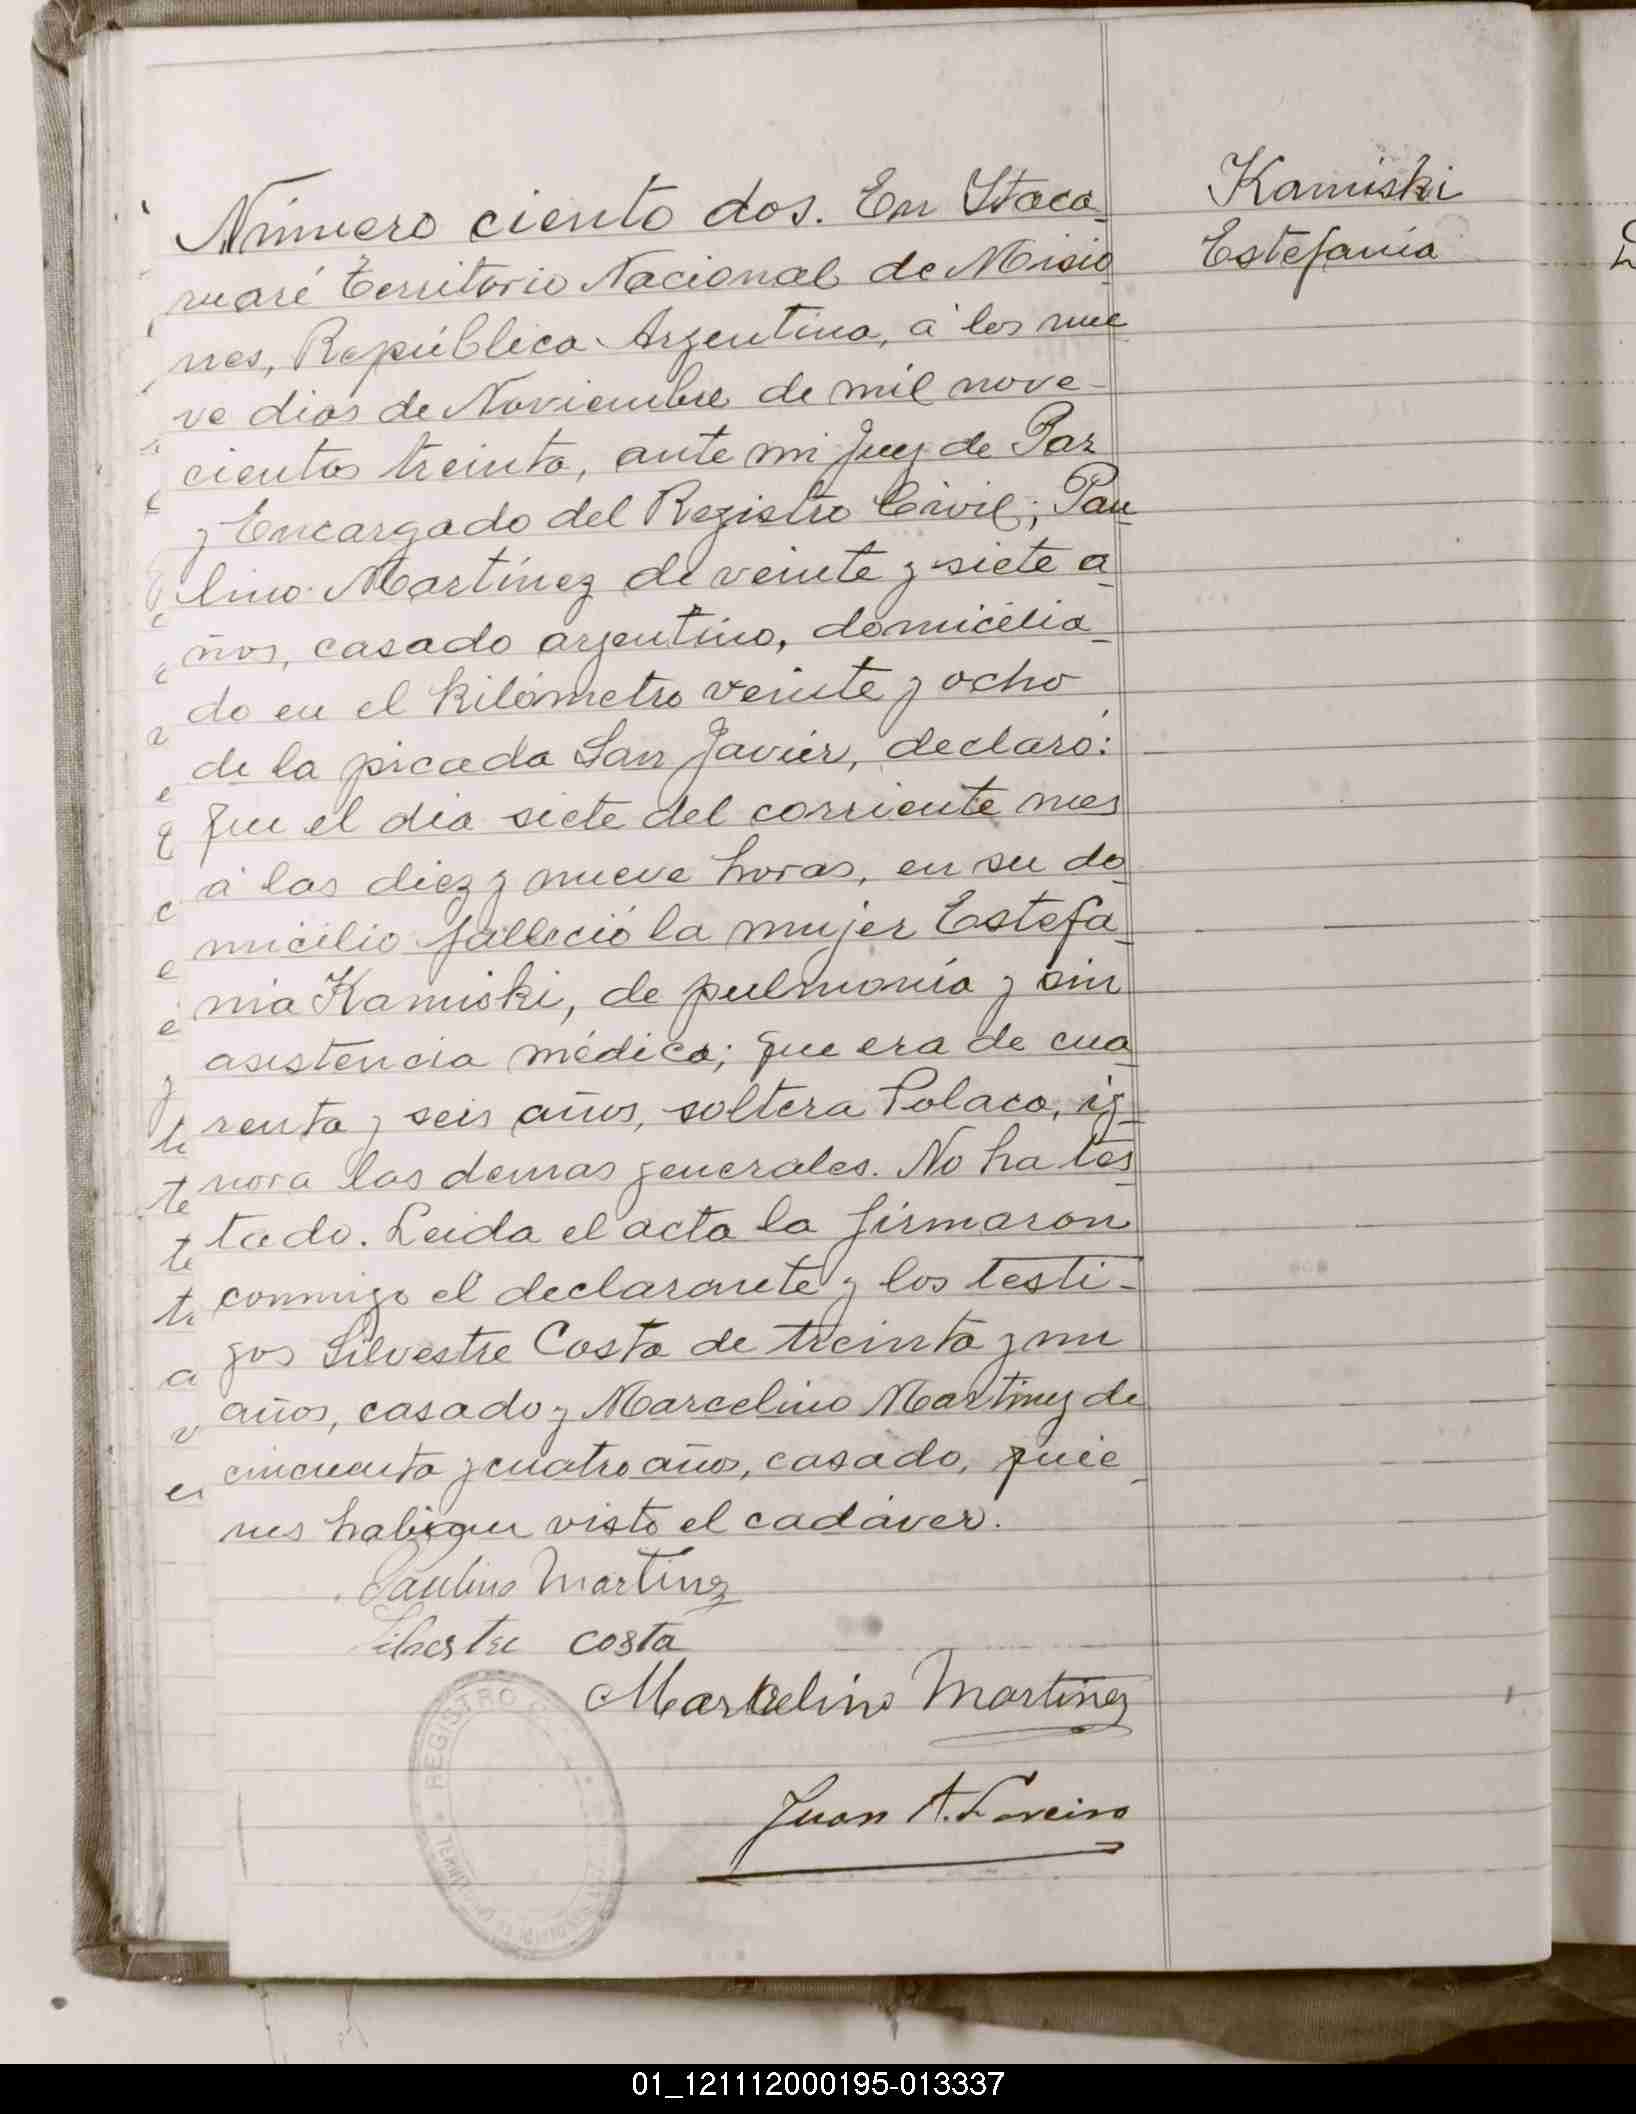 Número ciento dos. En Itaca-
ruaré Territorio Nacional de Misio
nes, República Argentina, á los nue
ve dias de Noviembre de mil nove-
cientos treinta, ante mi Juez de Paz
y Encargado del Registro Civil; Pau
lino Martínez de veinte y siete a-
ños, casado argentino, domicilia-
do en el kilómetro veinte y ocho
de la picada San Javier, declaró:
que el dia siete del corriente mes
á las diez y nueve horas, en su do
micilio falleció la mujer Estefa-
nia Kamiski, de pulmonía y sin
asistencia médica; que era de cua
renta y seis años, soltera Polaca, ig-
nora las demas generales. No ha tes-
tado. Leida el acta la firmaron
conmigo el declarante y los testi-
gos Silvestre Costa de treinta y un
años, casado y Marcelino Martinez de
cincuenta y cuatro años, casado, quie-
nes habian visto el cadáver.
Paulino Martinez
Silvestre Costa
Marcelino Martinez
Juan A.
REGISTRO
Kamiski
Estefanía
01_121112000195-013337